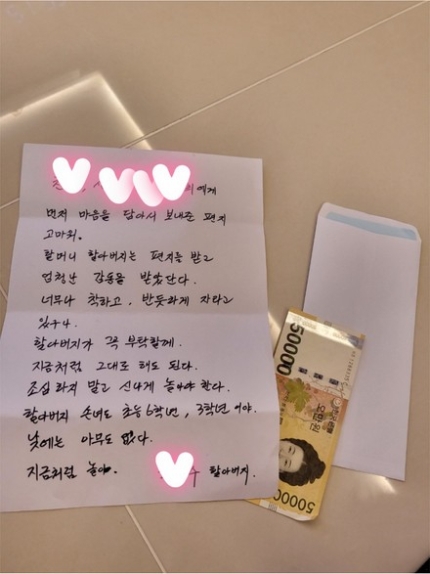 이에게
먼저 마음을 담아서 보내준 편지
고마워.
할머니 할아버지는 편지를 받고
엄청난 감동을 받았단다.
너무나 착하고, 반듯하게 자라고
있구나.
할아버지가 꼭 부탁할께.
지금처럼 그대로 해도 된다.
조심하지 말고 신나게 놀아야 한다.
할아버지 손녀도 초등6학년, 3학년이야.
낮에는 아무도 없다.
지금처럼 놀아.
할아버지.
50000
오만원
50000